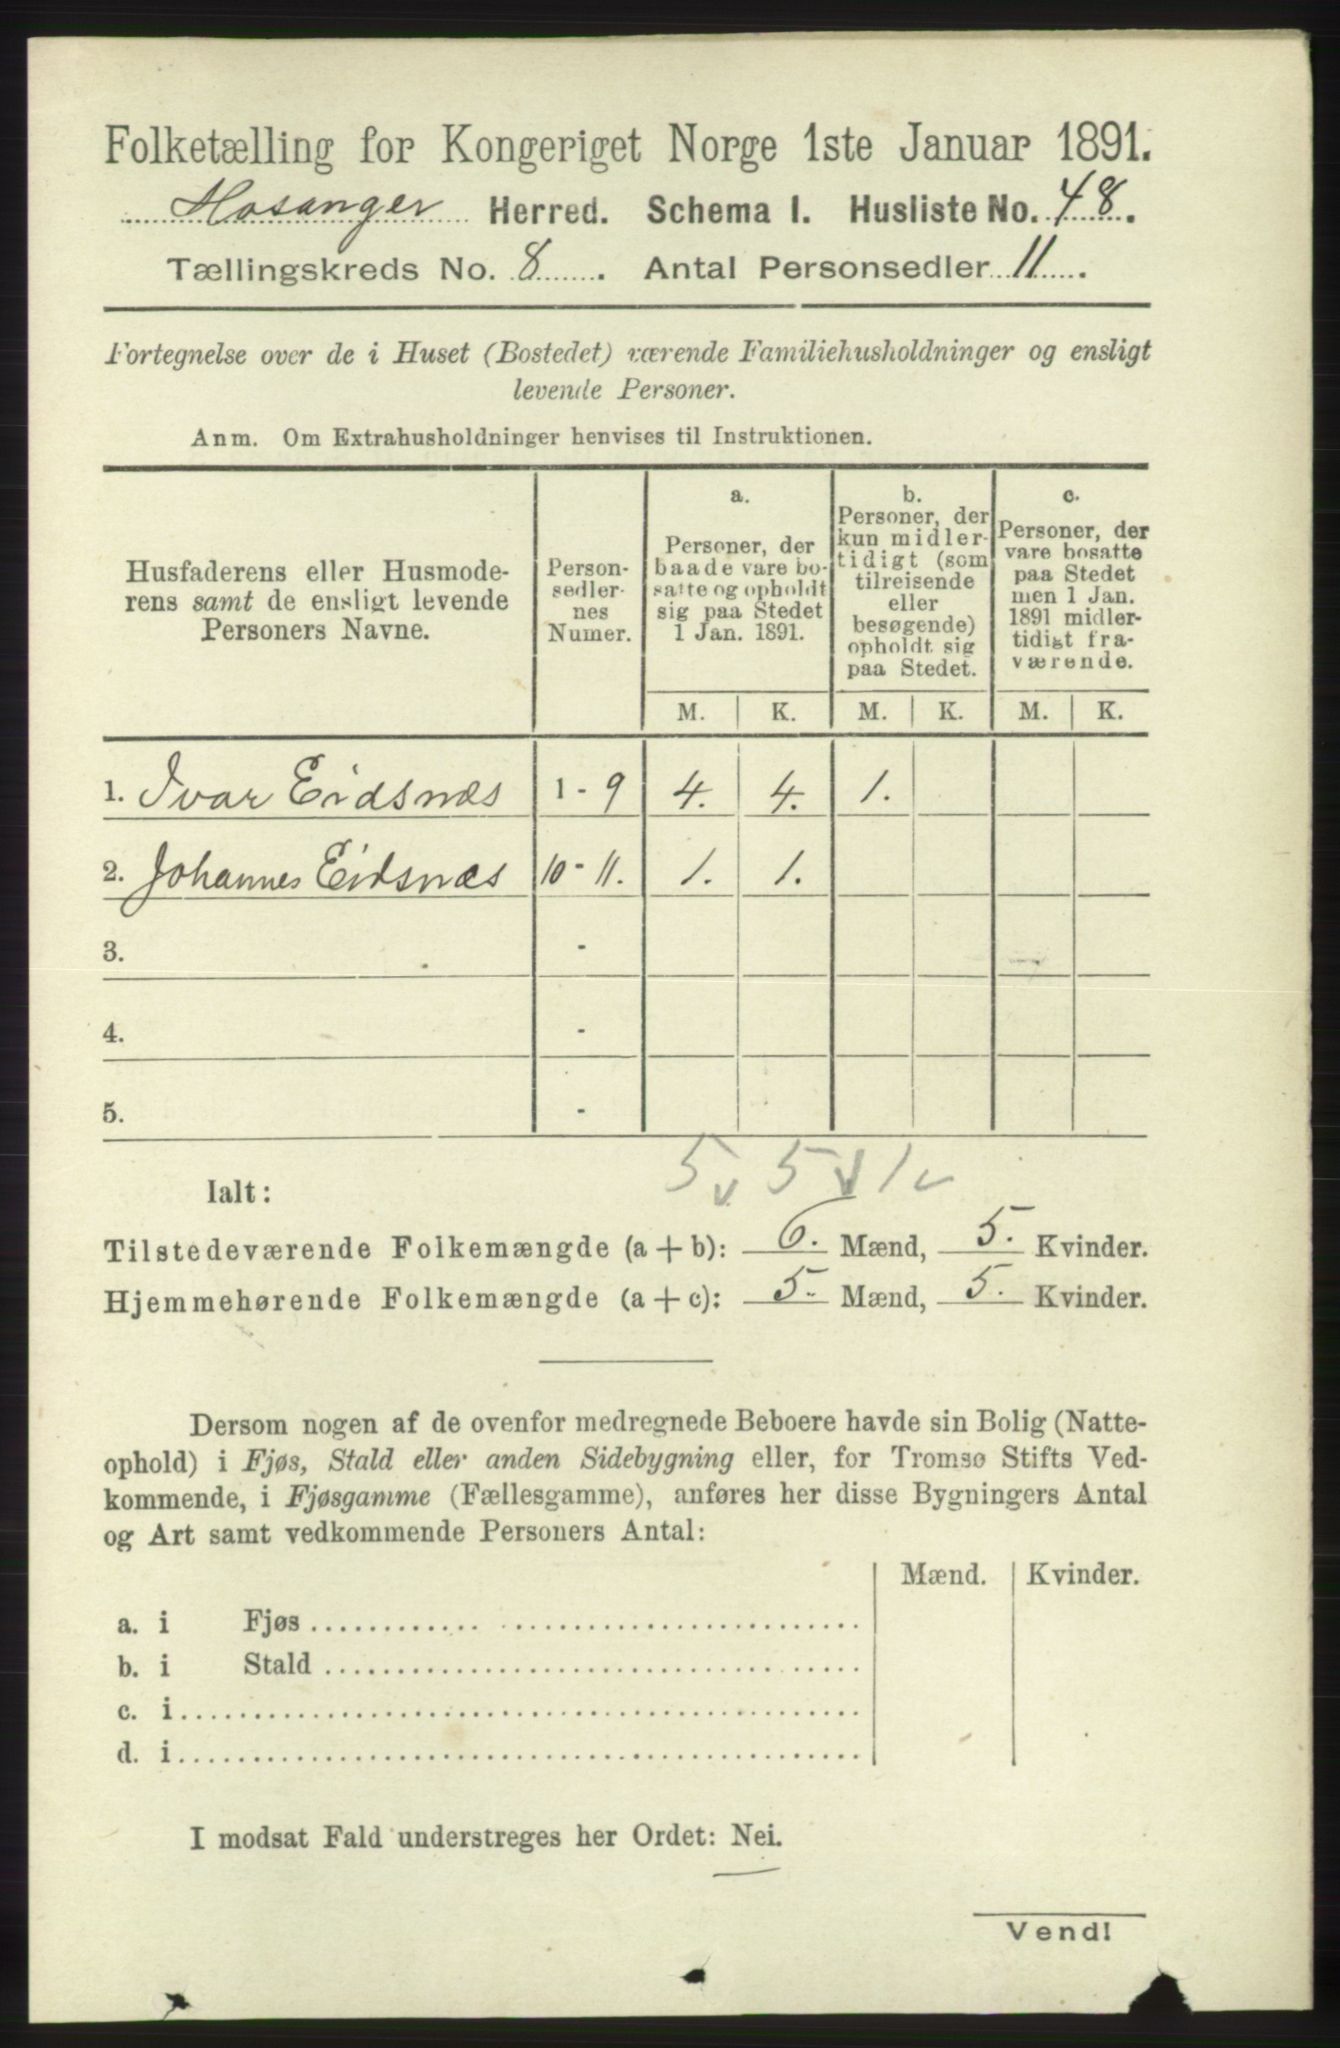 Folketælling for Kongeriget Norge 1ste Januar 1891.
Hosanger Herred. Schema I. Husliste No. 48.
Tællingskreds No. 8. Antal Personsedler 11.
Fortegnelse over de i Huset (Bostedet) værende Familiehusholdninger og ensligt
levende Personer.
Anm. Om Extrahusholdninger henvises til Instruktionen.
Husfaderens eller Husmode-
rens samt de ensligt levende
Personers Navne.
Person-
sedler-
nes
Numer.
a.
Personer, der
baade vare bo-
satte og opholdt
sig paa Stedet
1 Jan. 1891.
b.
Personer, der
kun midler-
tidigt (som
tilreisende
eller
besøgende)
opholdt sig
paa Stedet.
c.
Personer, der
vare bosatte
paa Stedet
men 1 Jan.
1891 midler-
tidigt fra-
værende.
M. K. M. K. M. K.
1. Ivar Eidsnæs 1 - 9 4. 4. 1.
2. Johannes Eidsnæs 10 - 11. 1. 1.
3. -
4. -
5. -
5 v 5 v 1 v
Ialt:
Tilstedeværende Folkemængde (a + b): 6. Mænd, 5. Kvinder.
Hjemmehørende Folkemængde (a + c): 5. Mænd, 5. Kvinder.
Dersom nogen af de ovenfor medregnede Beboere havde sin Bolig (Natte-
ophold) i Fjøs, Stald eller anden Sidebygning eller, for Tromsø Stifts Ved-
kommende, i Fjøsgamme (Fællesgamme), anføres her disse Bygningers Antal
og Art samt vedkommende Personers Antal:
Mænd. Kvinder.
a. i Fjøs
b. i Stald
c. i
d. i
I modsat Fald understreges her Ordet: Nei.
Vend!